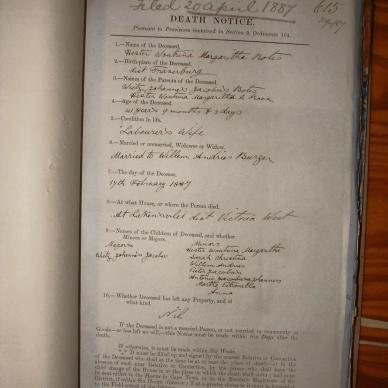 Filed 20 April 1887 615
DEATH NOTICE.
Pursuant to Provisions contained in Section 9, Ordinance 104.
1.—Name of the Deceased.
Hester Woutrina Margaretha Botes
2.—Birth-place of the Deceased.
dist Fraserburg
3.—Names of the Parents of the Deceased.
Wietz Johannes Jacobus Botes
Hester Woutrina Margaretha
4.—Age of the Deceased.
41 Years 9 months & 3 days
5.—Condition in life.
Labourer's Wife
6.—Married or unmarried, Widower or Widow.
Married to Willem Andries Burger
7.—The day of the Decease.
14th February 1887
8.—At what House, or where the Person died.
At dist Victoria West
9.—Names of the Children of Deceased, and whether
Minors or Majors.
Majors Minors
Hester Woutrina Margaretha
Wietz Johannes Jacobus Sarah Christina
Willem Andries
Pieter Jacobus
Antonie Johannes
Martha Petronella
Anna
10.—Whether Deceased has left any Property, and of
what kind.
Nil
If the Deceased is not a married Person, or not married in community of
Goods—or has left no will, this Notice must be made within five Days after the
death.
If otherwise, it must be made within Six Weeks.
It must be filled up and signed by the nearest Relative or Connection
of the Deceased who shall at the time be at or near the place of death—or in the
absence of such near Relative or Connection, by the person who shall have the
chief charge of the House in or of the place on which the death shall occur; and must
be sent to the Master in Cape Town